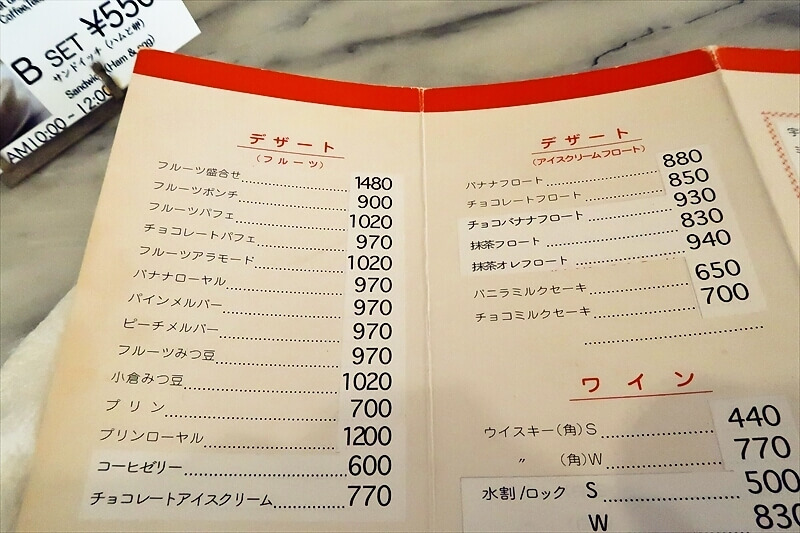 Coffee
B SET ¥550
サンドイッチ(ハムと卵)
Sandwich (Ham & egg)
AM10:00~12:00
デザート
(フルーツ)
フルーツ盛合せ 1480
フルーツポンチ 900
フルーツパフェ 1020
チョコレートパフェ 970
フルーツアラモード 1020
バナナローヤル 970
パインメルバー 970
ピーチメルバー 970
フルーツみつ豆 970
小倉みつ豆 1020
プリン 700
プリンローヤル 1200
コーヒゼリー 600
チョコレートアイスクリーム 770
デザート
(アイスクリームフロート)
バナナフロート 880
チョコレートフロート 850
チョコバナナフロート 930
抹茶フロート 830
抹茶オレフロート 940
バニラミルクセーキ 650
チョコミルクセーキ 700
ワイン
ウイスキー(角)S 440
〃 (角)W 770
水割/ロック S 500
W 830